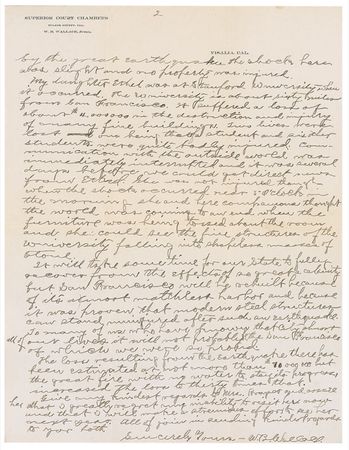 2
SUPERIOR COURT CHAMBERS
TULARE COUNTY, CAL.
W. B. WALLACE, JUDGE.
VISALIA, CAL.
by the great earthquake the shocks here
was slight and no property was injured.
My daughter Ethel was at Stanford University when
it occurred. The University is about sixty miles
from San Francisco. It suffered a loss of
about in the destruction and injury
of many fine buildings. Two lives were
lost being that a student and six other
students were quite badly injured. Com-
munication with the outside world was
immediately and it was several
days before we could get direct word
from Ethel. She was not injured though
when the shock occurred near 5 o'clock in
the morning she and her companions thought
the world was coming to an end when the
furniture was being tossed about the room
and she could see the fine structures of the
University falling into shapeless masses of
stone.
It will take some time for our State to fully
recover from the effects of so great a calamity
but San Francisco will be rebuilt because
of its almost matchless harbor and because
it was proven that modern steel structures
can stand uninjured after such an earthquake.
To many of us who have known that Co almost
all of our lives it will not probably be the San Francisco
of which we were so proud.
The loss resulting from the earthquake there has
been estimated at not more than but
the great fire with no water to stay its progress
increased the loss to thirty times that.
Give my kindest regards to Mrs. and say to
her that I greatly regret my inability to visit here now
and that I will make a strenuous effort to go next
year. All of join in sending kindest regards
to you both.
Sincerely Yours — W.B. Wallace